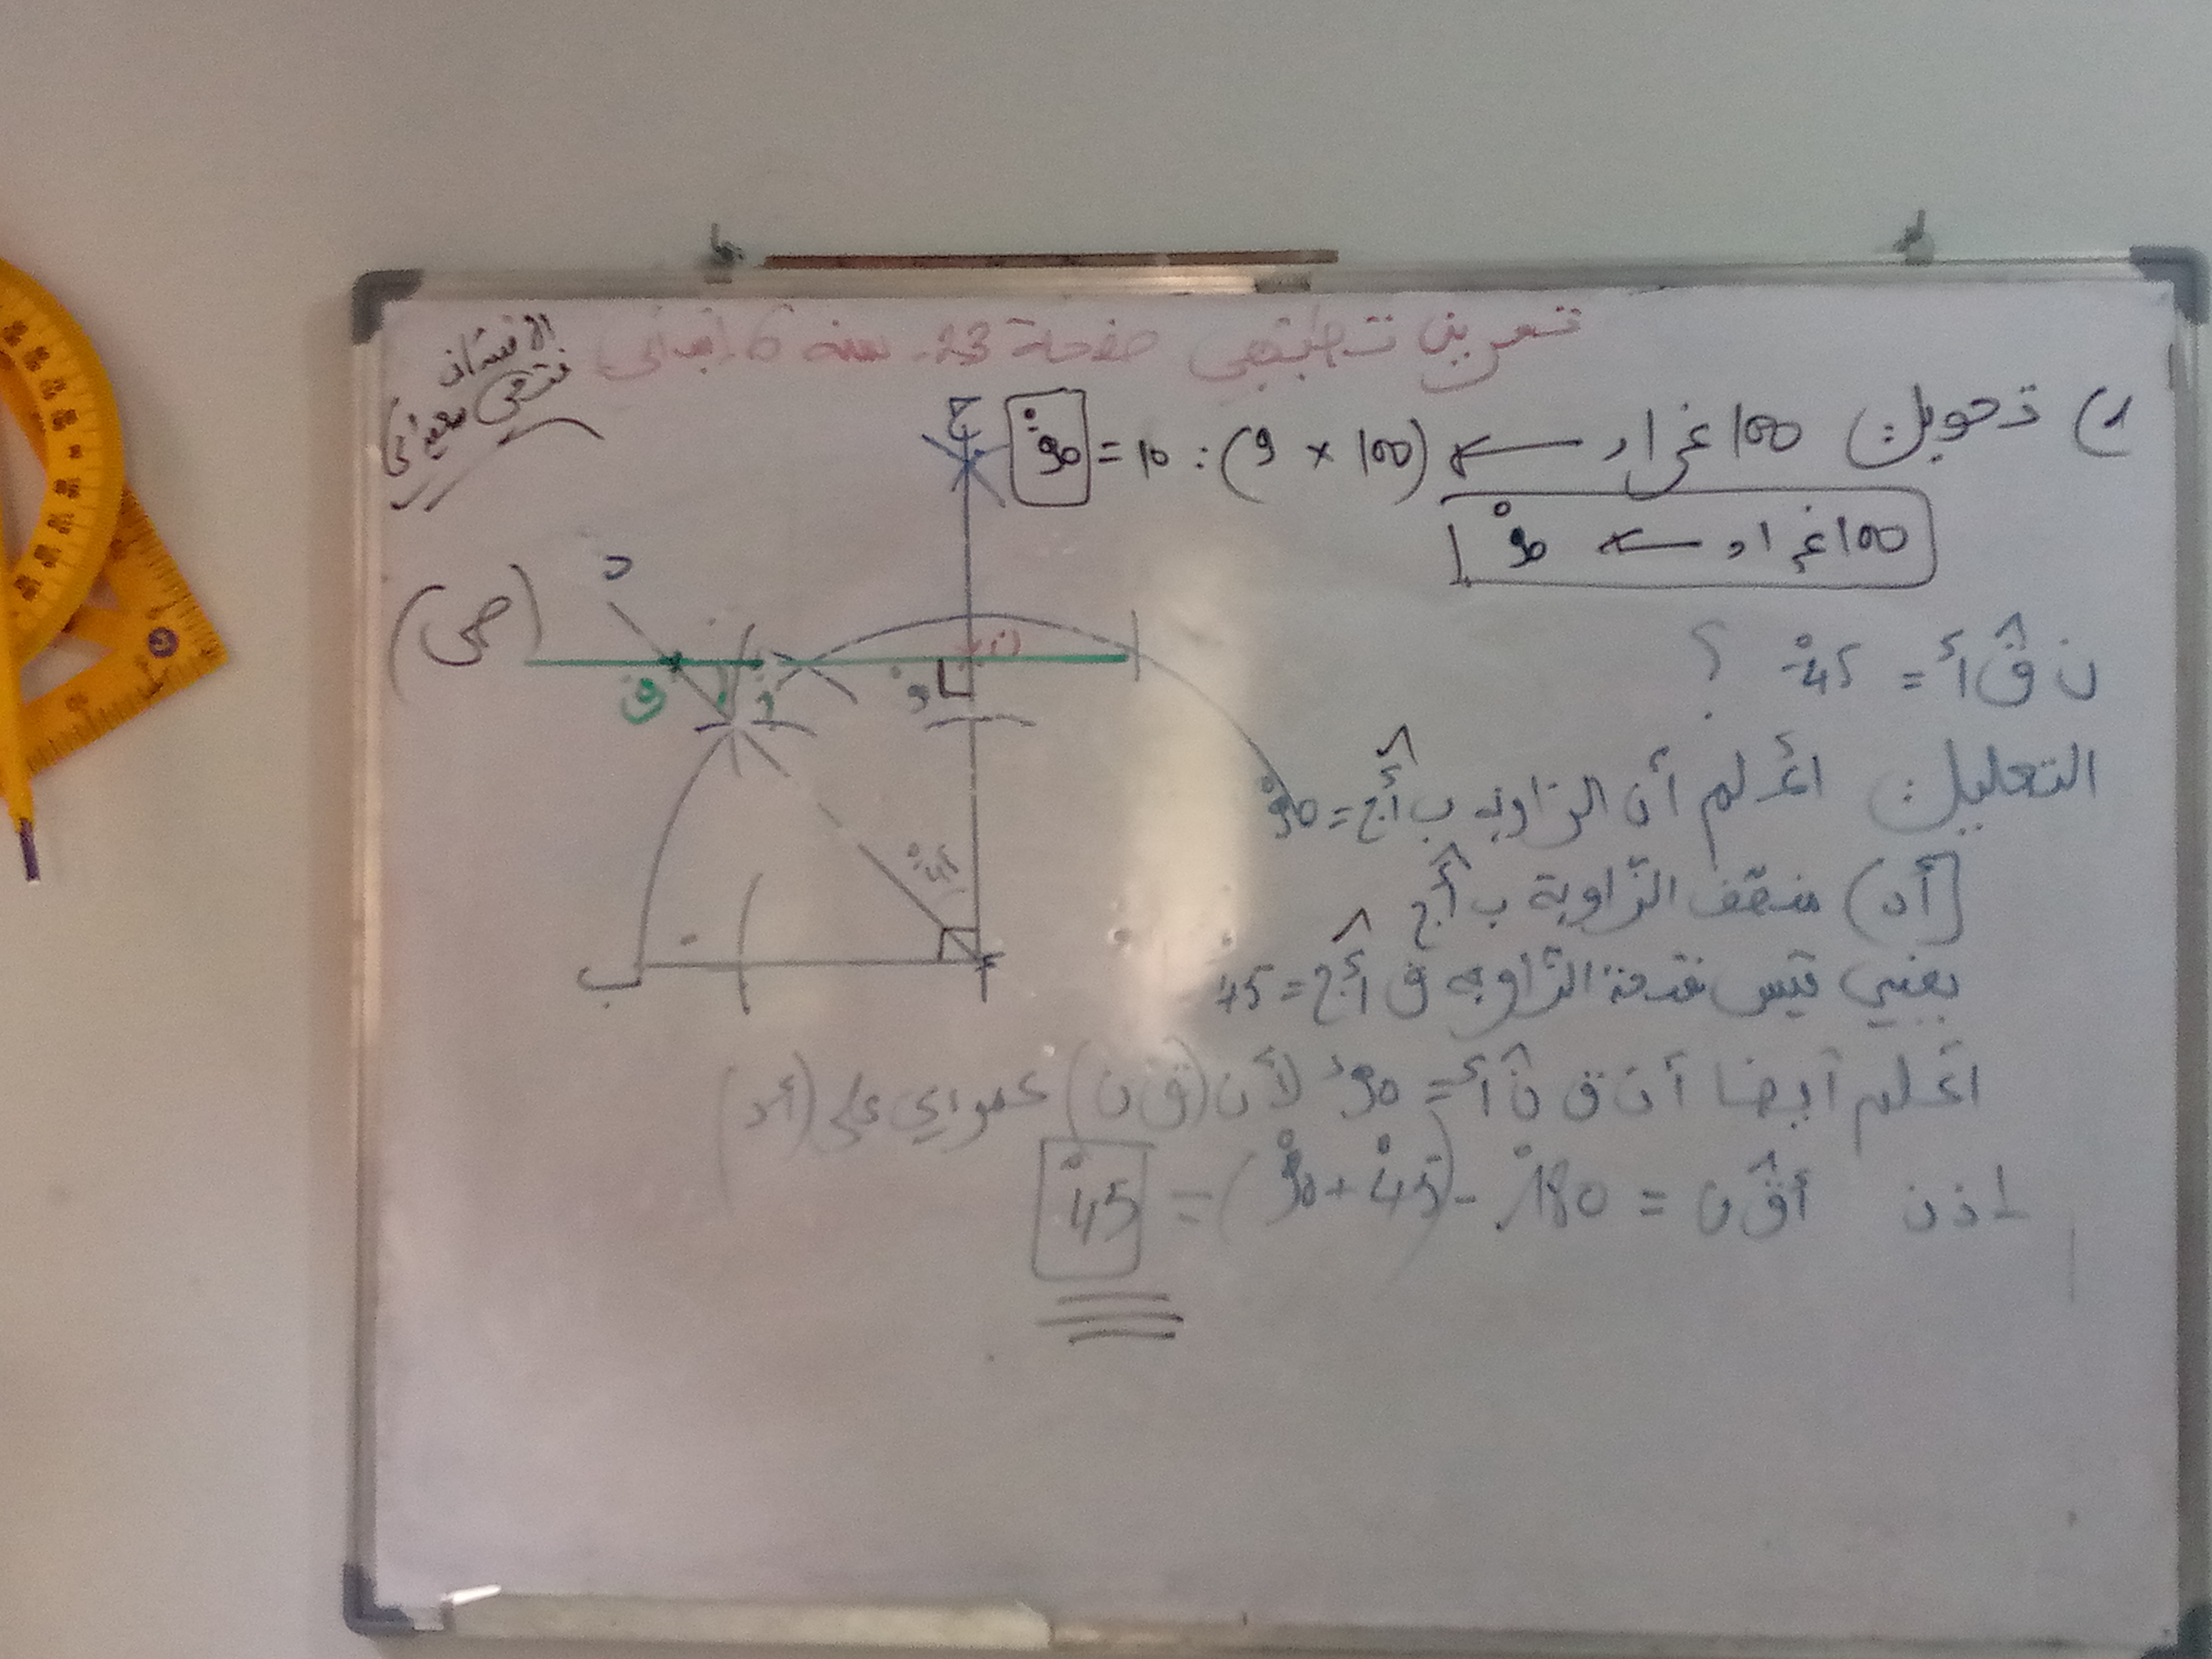 تمرين تطبيقي صفحة 23 - سنة 6 ابتدائي
فتحي
1) تحويل: 100 غراد ← (100 × 9) : 10 = 90°
100 غراد ← 90°
ن ق̂ أ = 45° ؟
التعليل: أعلم أن الزاوية ب أ̂ ج = 90°
[أد) منصف الزاوية ب أ̂ ج
يعني قيس فتحة الزاوية ق أ̂ ج = 45
أعلم أيضا أن ق ن̂ أ = 90° لأن (ق ن) عمودي على (أد)
إذن أ ق̂ ن = 180° - (45° + 90°) = 45°
ج
د
(ص)
ق
ن
و
45°
ب
أ